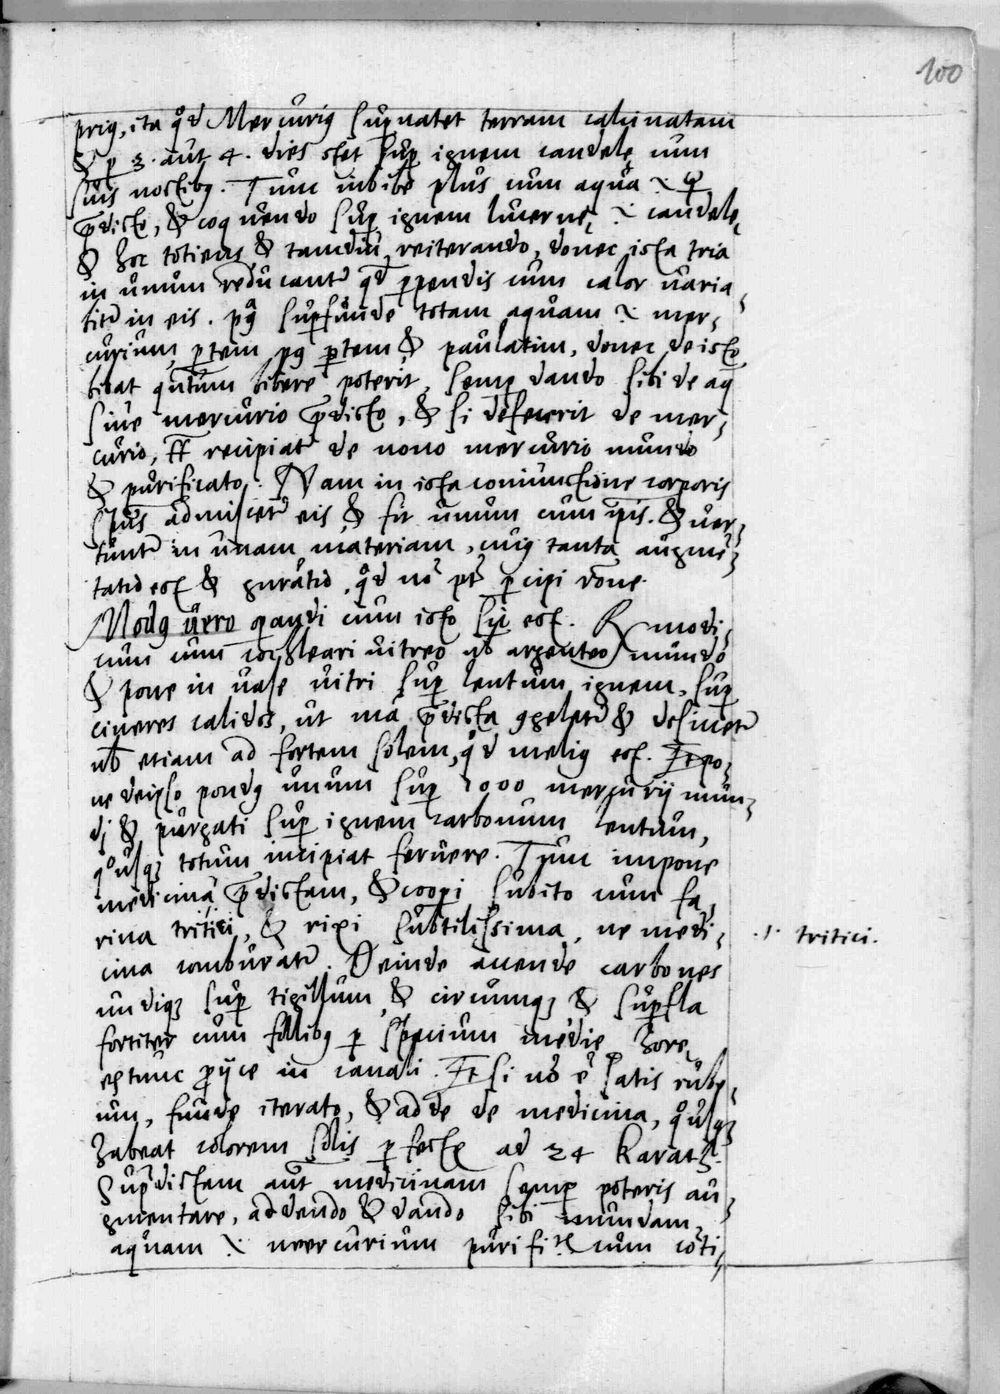 100
prig, ita qd Mercurig supnatet terram calcinatam
& p 3. aut 4. dies stet sup ignem candelę cum
suis noctibg. Tunc inbibe plus cum aqua
pdicto, & coquendo sup ignem lucernę, candelę
& hoc totiens & tamdiu reiterando, donec ista tria
in unum reducantr qd ppendis cum calor varia
titr in eis. pq supfunde totam aquam mer,
curium, ptem pg ptem & paulatim, donec de isto
bibat qntum bibere poterit, semp dando sibi de aq
sive mercurio pdicto, & si defecerit de mer,
curio, tt recipiat de novo mercurio mundo
& purificato. Nam in ista coniunctione corporis
spus admiscetr eis & fit unum cum ipis. & ver,
tuntr in unam materiam, cuig tanta augme,
tatio est & gnratio, qd no pt pcipi rone.
Modg vero opandi cum isto sic est. R modi,
cum cum cochleari vitreo vb argenteo mundo
& pone in vase vitri sup lentum ignem, sup
cineres calidos, ut ma pdicta 9geletr & desiccetr
vb etiam ad fortem solem, qd melig est. It po,
ne de ipso pondg unum sup 1000 mercurij mun,
dj & purgati sup ignem carbonum lentum,
qousq totum incipiat fervere. Tunc impone
medicina pdictam, & coopi subito cum fa,
rina tritici, & rixi subtilissima, ne medi,
cina comburatr. Deinde accende carbones
undiq sup tigillum & circumq & supfla
fortiter cum follibg p spacium medię horę,
extunc pijce in canali. It si no e satis rube,
um, funde iterato, & adde de medicina, qousq
habeat colorem solis pfecte ad 24 karat
Supdictam aut medicinam semp poteris au,
gmentare, addendo & dando sibi mundam
aquam mercurium purific cum coti,
.i. tritici.